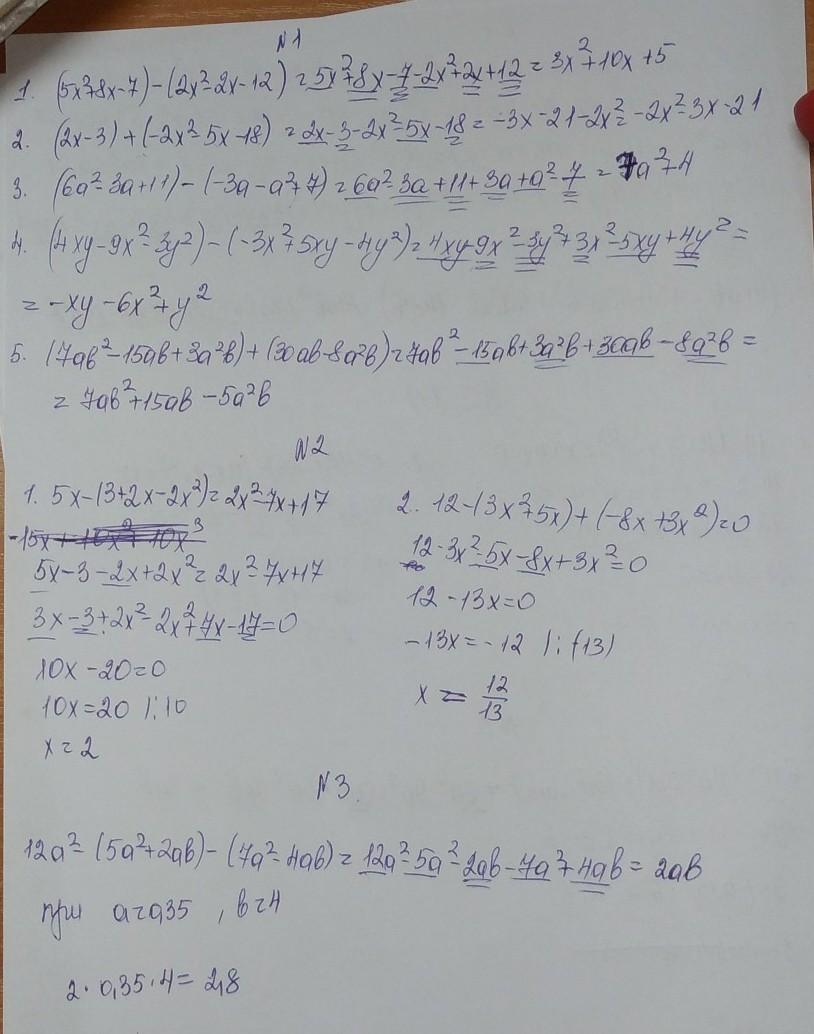 N1
1. (5x²+8x-7)-(2x²-2x-12)=5x²+8x-7-2x²+2x+12=3x²+10x+5
2. (2x-3)+(-2x²-5x-18)=2x-3-2x²-5x-18=-3x-21-2x²=-2x²-3x-21
3. (6a²-3a+11)-(-3a-a²+7)=6a²-3a+11+3a+a²-7=7a²+4
4. (4xy-9x²-3y²)-(-3x²+5xy-4y²)=4xy-9x²-3y²+3x²-5xy+4y²=
=-xy-6x²+y²
5. (7ab²-15ab+3a²b)+(30ab-8a²b)=7ab²-15ab+3a²b+30ab-8a²b=
=7ab²+15ab-5a²b
N2
1. 5x-(3+2x-2x²)=2x²-7x+17
-15x+10x²+10x³
5x-3-2x+2x²=2x²-7x+17
3x-3+2x²-2x²+7x-17=0
10x-20=0
10x=20 |:10
x=2
2. 12-(3x²+5x)+(-8x+3x²)=0
12-3x²-5x-8x+3x²=0
12-13x=0
-13x=-12 |:(13)
x=12/13
N3.
12a²-(5a²+2ab)-(7a²-4ab)=12a²-5a²-2ab-7a²+4ab=2ab
при a=0,35, b=4
2·0,35·4=2,8